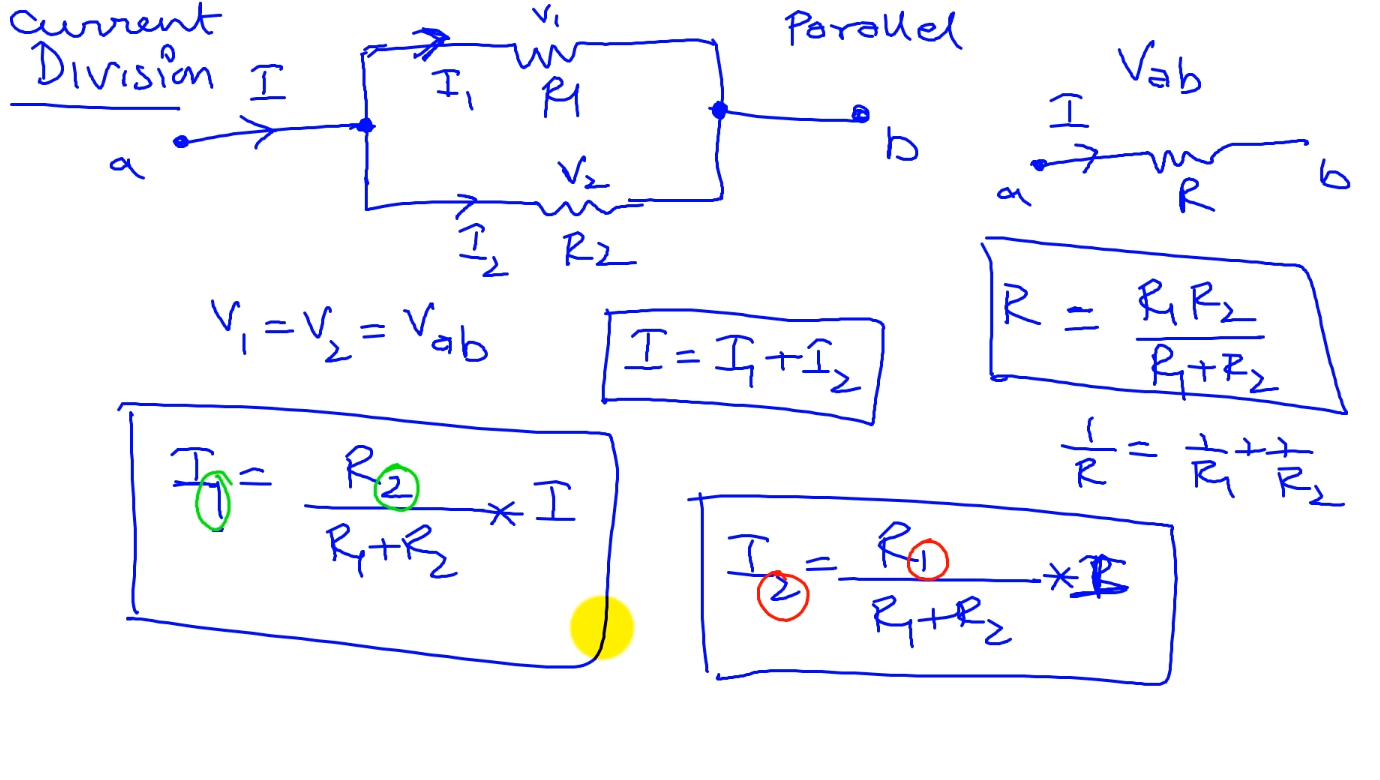 Current
Division
I
a
I₁
V₁
R1
I₂
V₂
R2
b
Parallel
Vab
I
a
R
b
V₁ = V₂ = Vab
I = I₁ + I₂
R = R₁ R₂ / R₁ + R₂
1/R = 1/R₁ + 1/R₂
I₁ = R₂ / R₁ + R₂ * I
I₂ = R₁ / R₁ + R₂ *